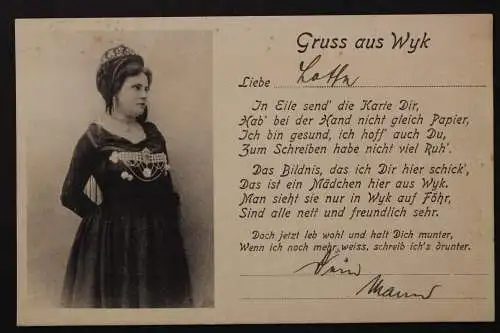 Gruss aus Wyk
Liebe Lotte
In Eile send' die Karte Dir,
Hab' bei der Hand nicht gleich Papier,
Ich bin gesund, ich hoff' auch Du,
Zum Schreiben habe nicht viel Ruh'.
Das Bildnis, das ich Dir hier schick',
Das ist ein Mädchen hier aus Wyk.
Man sieht sie nur in Wyk auf Föhr,
Sind alle nett und freundlich sehr.
Doch jetzt leb wohl und halt Dich munter,
Wenn ich noch mehr weiss, schreib ich's drunter.
Dein
Mann